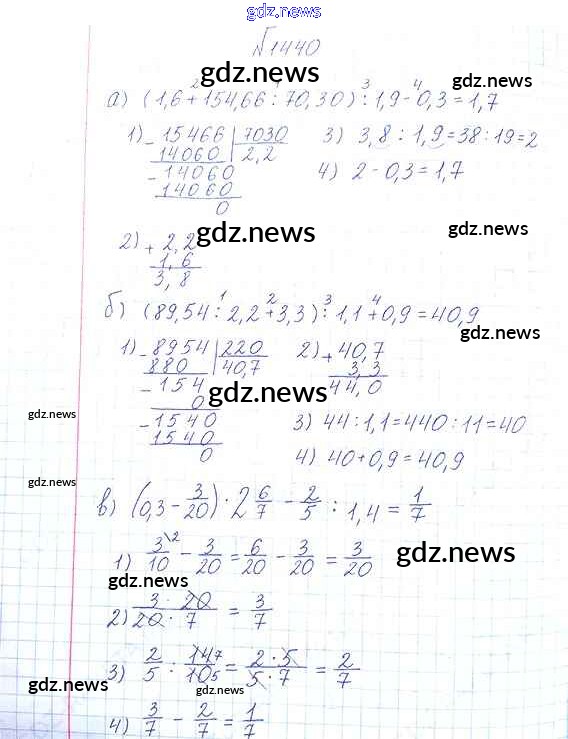 gdz.news
№1440
gdz.news
gdz.news
а) (1,6+154,66:70,30):1,9-0,3=1,7
2 1 3 4
1) - 15466 | 7030
14060 | 2,2
- 14060
14060
0
3) 3,8 : 1,9=38:19=2
4) 2-0,3=1,7
gdz.news
gdz.news
2) + 2,2
1,6
3,8
б) (89,54:2,2+3,3):1,1+0,9=40,9
1 2 3 4
gdz.news
1) - 8954 | 220
880 | 40,7
- 154
0
- 1540
1540
0
2) + 40,7
3,3
44,0
gdz.news
gdz.news
3) 44:1,1=440:11=40
4) 40+0,9=40,9
gdz.news
в) (0,3 - 3/20) · 2 6/7 - 2/5 : 1,4 = 1/7
1) 3\2/10 - 3/20 = 6/20 - 3/20 = 3/20
gdz.news
gdz.news
2) 3·20/20·7 = 3/7
3) 2/5 : 14 7/10 5 = 2·5/5·7 = 2/7
gdz.news
gdz.news
gdz.news
4) 3/7 - 2/7 = 1/7